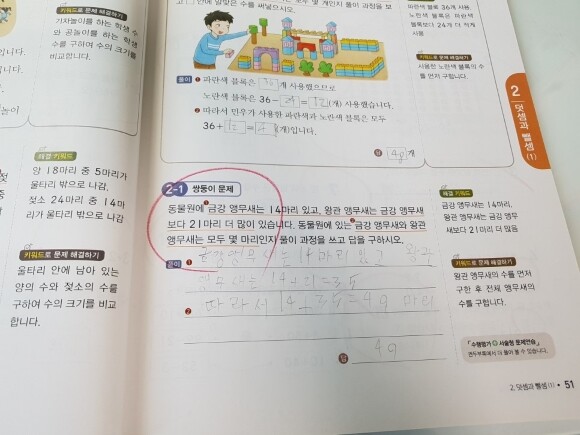 기자놀이를 하는 학생 수
와 공놀이를 하는 학생
수를 구하여 수의 크기를
비교합니다.
해결 키워드
양 18마리 중 5마리가
울타리 밖으로 나감.
젖소 24마리 중 14마
리가 울타리 밖으로 나감
키워드로 문제 해결하기
울타리 안에 남아 있는
양의 수와 젖소의 수를
구하여 수의 크기를 비교
합니다.
안에 알맞은 수를 써넣으시오.
풀이 ❶ 파란색 블록은 36개 사용했으므로
노란색 블록은 36-24=12(개) 사용했습니다.
❷ 따라서 민우가 사용한 파란색과 노란색 블록은 모두
36+12=48(개)입니다.
답 48개
2-1 쌍둥이 문제
동물원에 금강 앵무새는 14마리 있고, 왕관 앵무새는 금강 앵무새
보다 21마리 더 많이 있습니다. 동물원에 있는 금강 앵무새와 왕관
앵무새는 모두 몇 마리인지 풀이 과정을 쓰고 답을 구하시오.
풀이 ❶ 금강앵무새는 14마리 있고 왕관
앵무새는 14+21=35
❷ 따라서 14+35=49 마리
답 49
노란색 블록은 파란색
블록보다 24개 더 적게
사용
키워드로 문제 해결하기
사용한 노란색 블록의 수
를 먼저 구합니다.
2
덧셈과 뺄셈 (1)
해결 키워드
금강 앵무새는 14마리,
왕관 앵무새는 금강 앵무
새보다 21마리 더 많음
키워드로 문제 해결하기
왕관 앵무새의 수를 먼저
구한 후 전체 앵무새의
수를 구합니다.
「수행평가 + 서술형 문제연습」
연두부록에서 더 풀어 볼 수 있습니다.
2. 덧셈과 뺄셈 (1) • 51